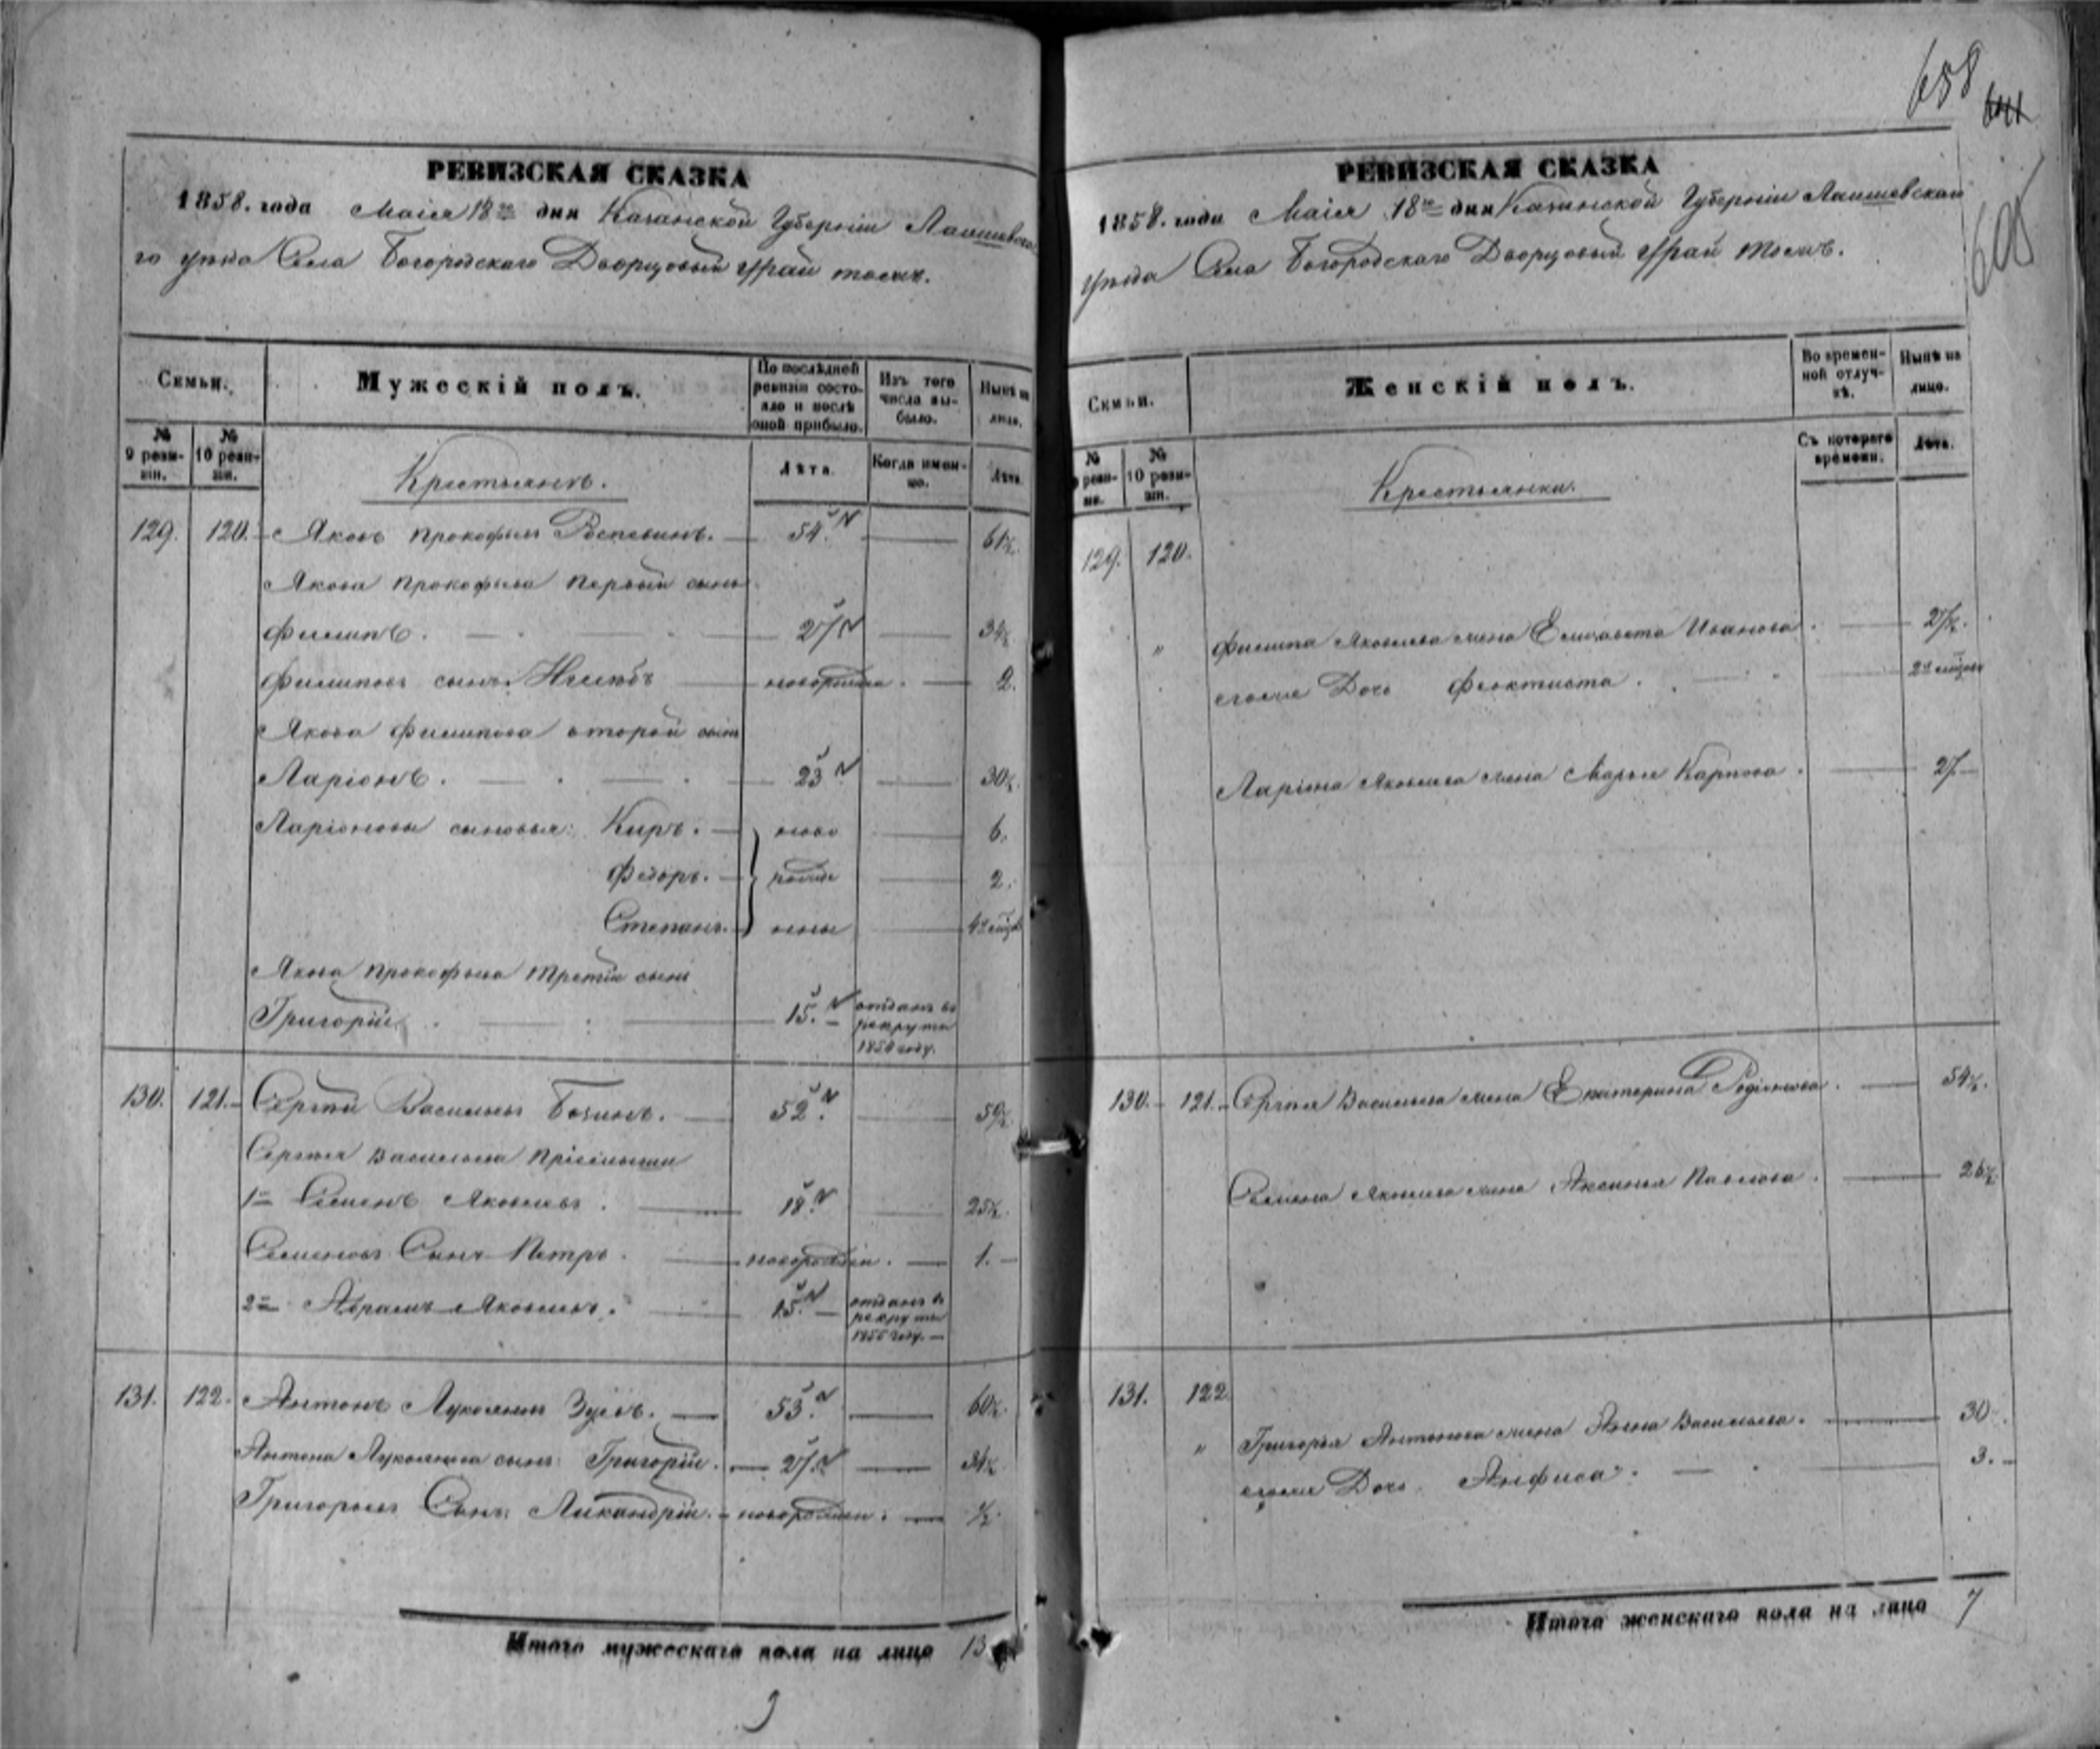 658
641
605
РЕВИЗСКАЯ СКАЗКА
1858. года Маія 18го дня Казанской Губерніи Лаишевска
го уѣзда Села Богородскаго Дворцовый Урай тожъ.
Семьи. Мужескій полъ. По послѣдней ревизіи состояло и послѣ оной прибыло. Изъ того числа выбыло. Нынѣ на лицо.
№ 9 ревизіи. № 10 ревизіи. Лѣта. Когда именно. Лѣта.
Крестьянъ.
129. 120. Яковъ Прокофьевъ 54. 61½
Якова Прокофьева первый сынъ
Филипъ. 27 34½
Филиповъ сынъ 2.
Якова Филипова второй сынъ
Ларіонъ. 23 30½
Ларіоновы сыновья: Киръ. ново 6.
Федоръ. рожде 2.
Степанъ. нные 4
Якова Прокофьева третій сынъ
Григорій 15. отданъ въ
рекруты
1854 году.
130. 121. Сергѣй Васильевъ 52. 59½
Сергѣя Васильева пріемыши
1й Семенъ Яковлевъ. 18. 25½
Семеновъ Сынъ Петръ. новорожден. 1.
2й Абрамъ Яковлевъ. 15. отданъ въ
рекруты
1855 году.
131. 122. Антонъ Лукояновъ Зуевъ. 53. 60½
Антона Лукоянова сынъ Григорій. 27. 34½
Григорьевъ Сынъ Никандрій. новорожден. ½
Итого мужескаго пола на лицо 13
РЕВИЗСКАЯ СКАЗКА
1858. года Маія 18го дня Казанской Губерніи Лаишевскаго
уѣзда Села Богородскаго Дворцовый Урай тожъ.
Семьи. Женскій полъ. Во временной отлучкѣ. Нынѣ на лицо.
№ 9 ревизіи. № 10 ревизіи. Съ котораго времени. Лѣта.
Крестьянки.
129. 120.
" Филипа Яковлева жена Елисавета Иванова. 27½.
егоже Дочь Феоктиста.
Ларіона Яковлева жена Марья Карпова. 27
130. 121. Сергѣя Васильева жена Екатерина Родіонова. 54½.
Семена Яковлева жена Аксинья Павлова. 26½
131. 122.
" Григорья Антонова жена Анна Васильева. 30.
егоже Дочь Анфиса. 3.
Итого женскаго пола на лицо 7